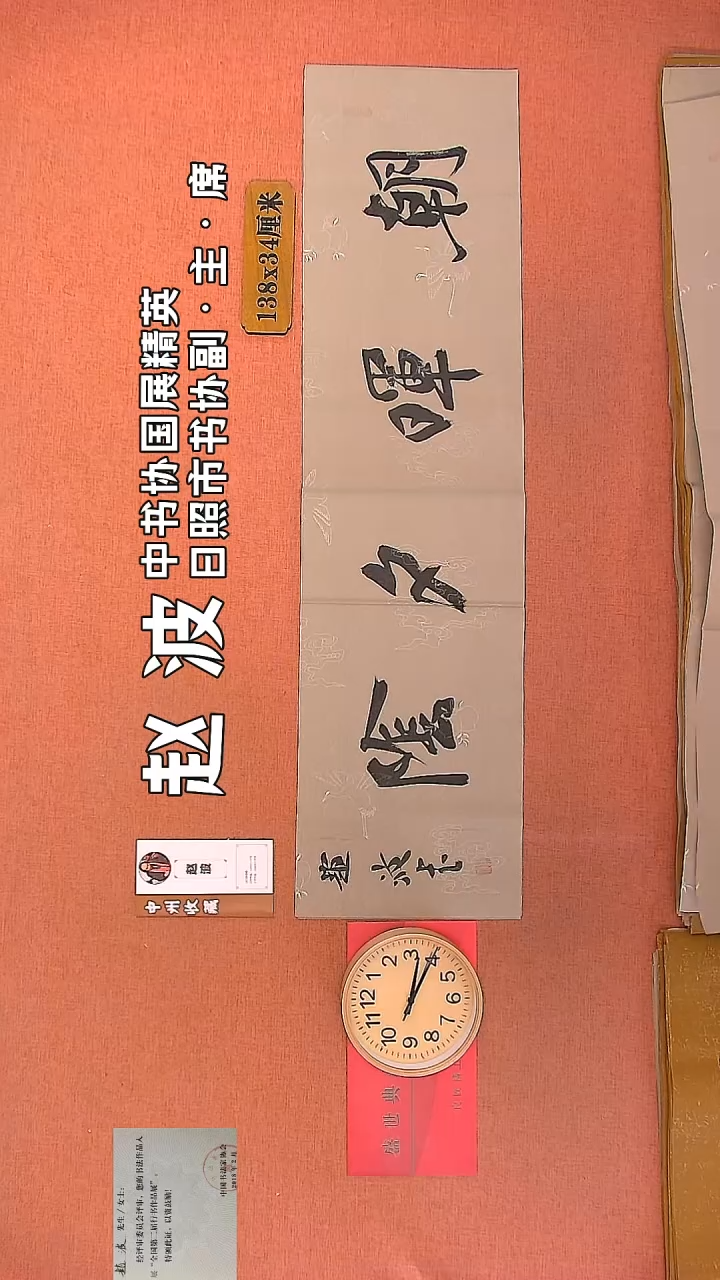 赵波
中书协国展精英
日照市书协副·主·席
138x34厘米
朝暉夕陰
趙波书
赵波
中州收藏
12 1 2 3 4 5 6 7 8 9 10 11
盛世典
赵波 先生/女士:
经评审委员会评审，您的书法作品入
“全国第二届行书作品展”。
特颁此证，以资鼓励!
中国书法家协会